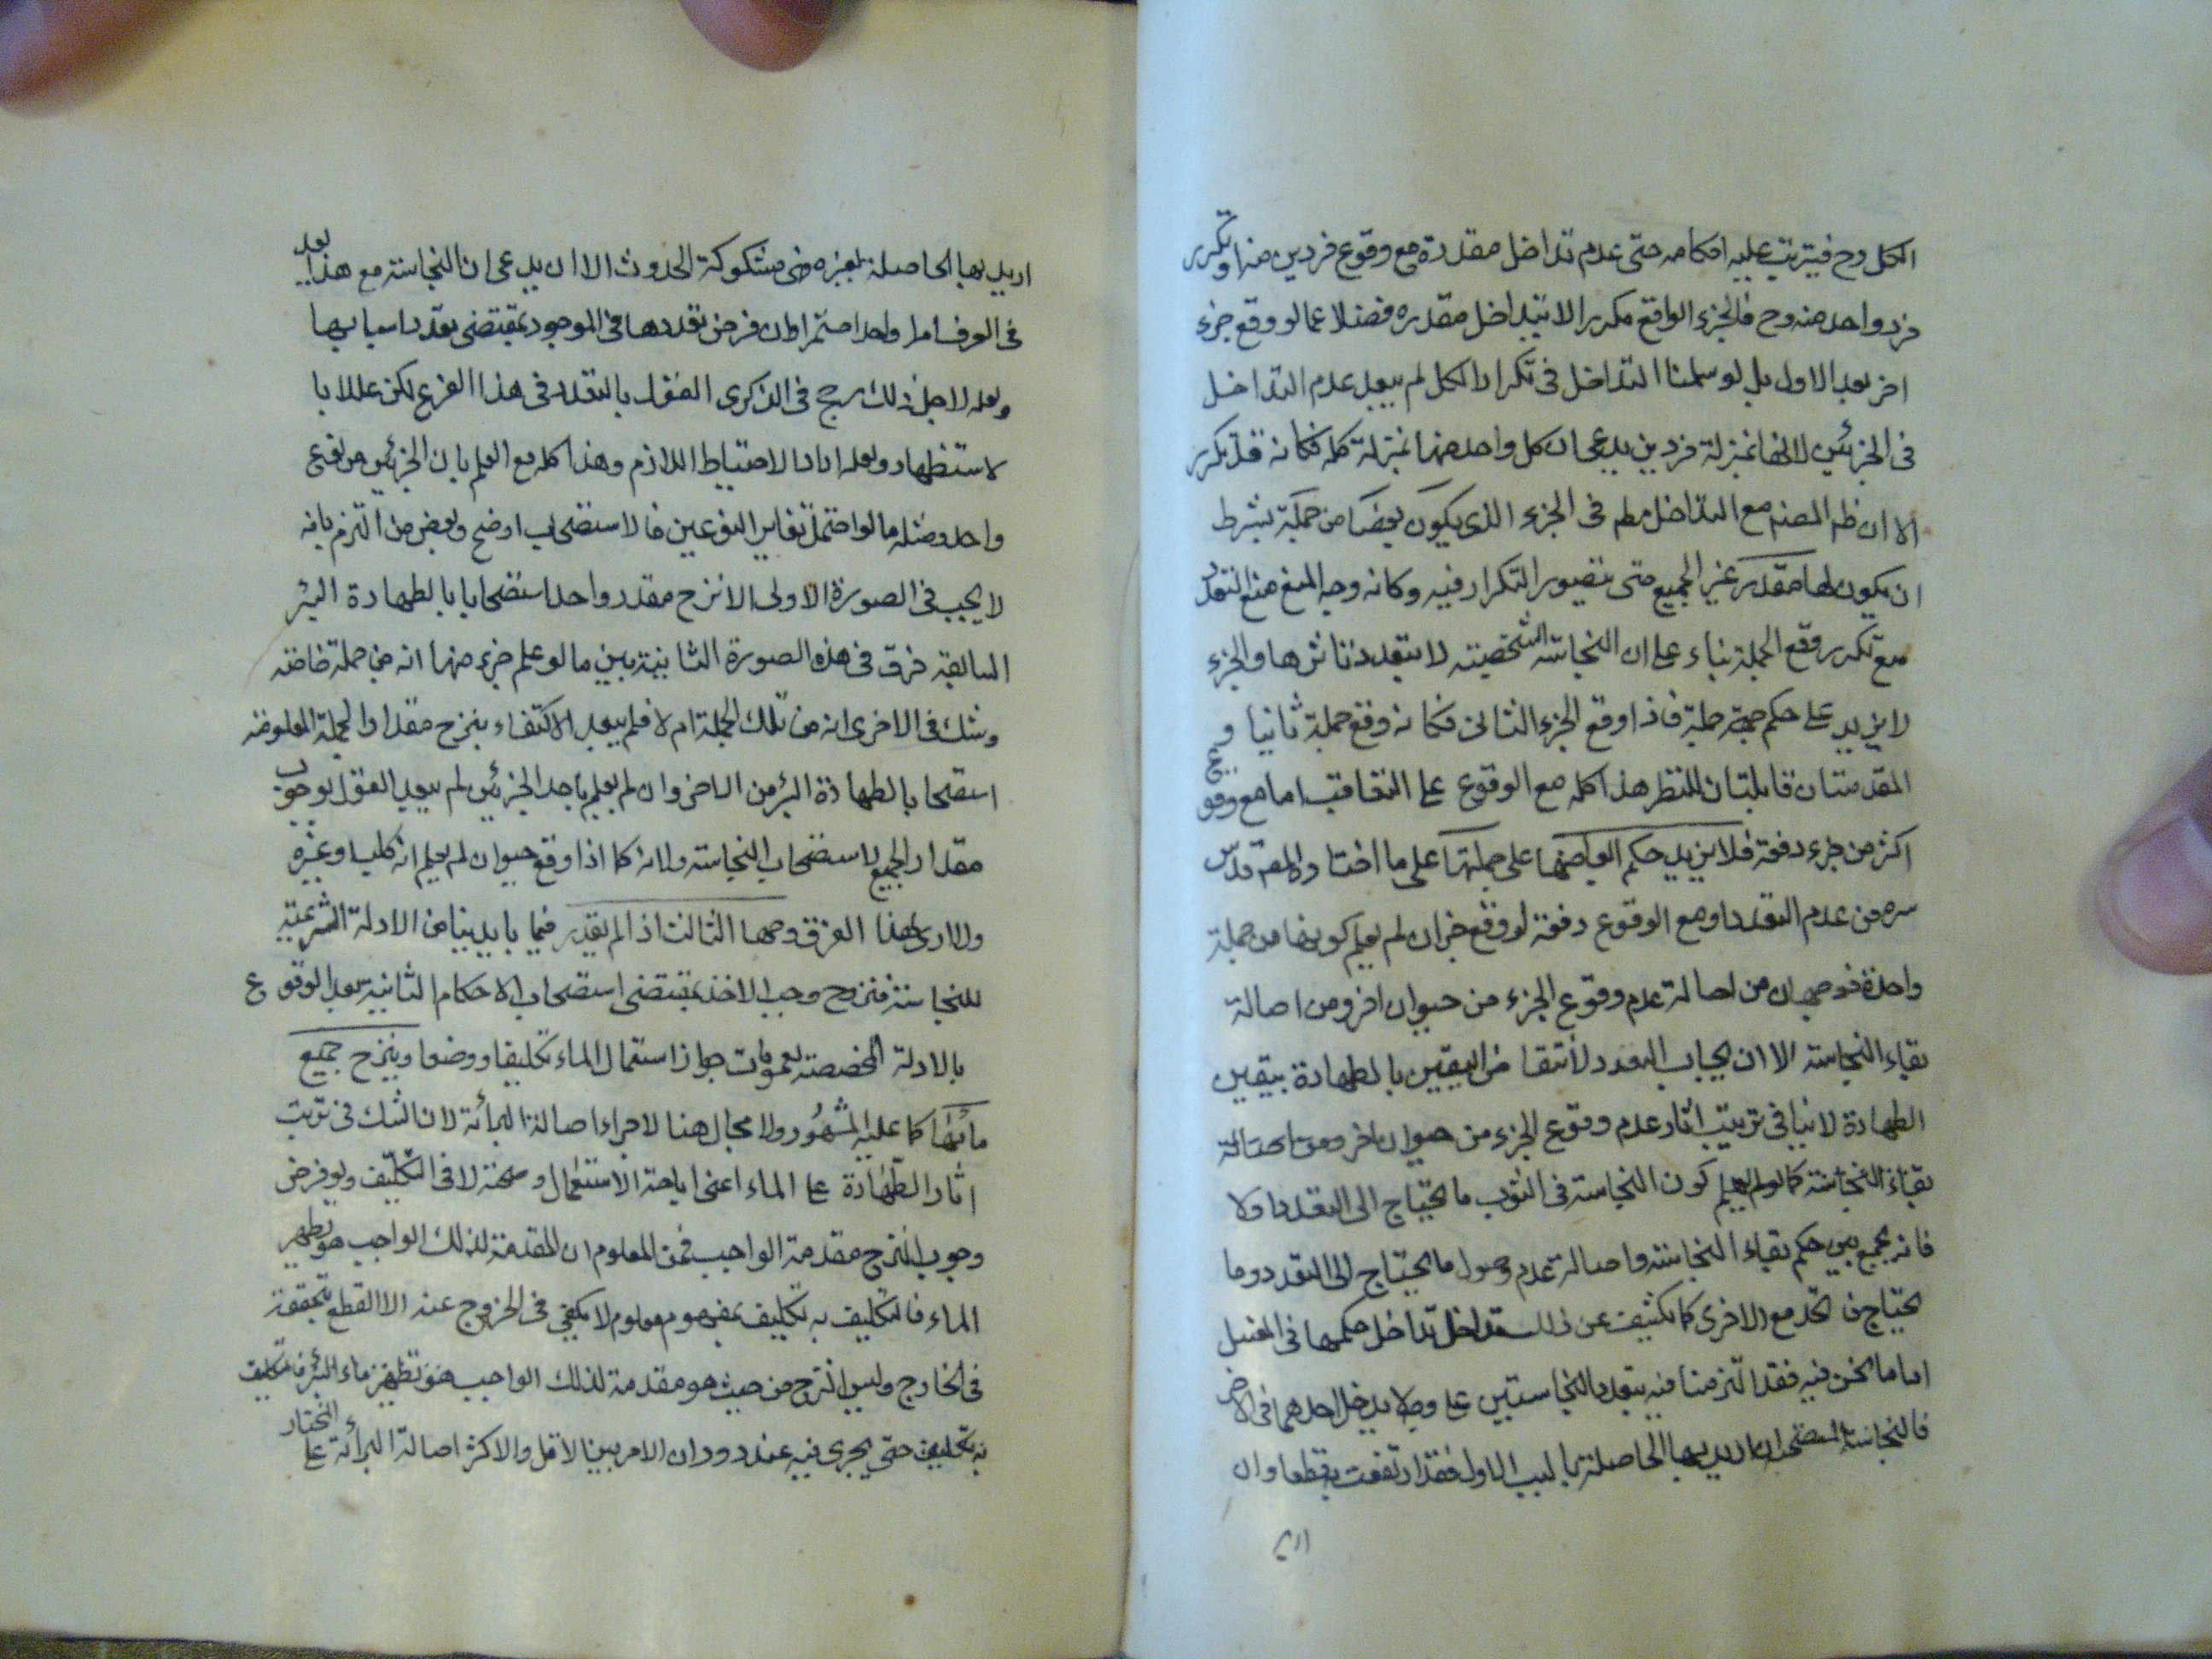 الكل وح فيترتب عليه احكامه حتى عدم تداخل مقدرة مع وقوع فردين منه او تكرر
فرد واحد منه وح فالجزء الواقع مكررا لا يتداخل مقدره فضلا عما لو وقع جزء
اخر بعد الاول بل لو سلمنا التداخل فى تكرار الكل لم يبعد عدم التداخل
فى الجزئين لانهما بمنزلة فردين بدعوى ان كل واحد منهما بمنزلة كله فكانه قد تكرر
الا ان ظم المصنف مع التداخل مطم فى الجزء الذى يكون بعضا من جملة بشرط
ان يكون لها مقدر غير الجميع حتى يتصور التكرار فيه وكانه وجه المنع منع التعدد
مع تكرر وقع الجملة بناء على ان النجاسة الشخصية لا يتعدد تاثرها والجزء
لا يزيد على حكم جملة فاذا وقع الجزء الثانى فكانه وقع جملة ثانيا و
المقدمتان قابلتان للنظر هذا كله مع الوقوع على التعاقب اما مع وقوع
اكثر من جزء دفعة فلا يزيد حكم ابعاضها على جملتها على ما اختاره المصم قدس
سره من عدم التعدد او مع الوقوع دفعة لو وقع جزءان لم يعلم كونهما من جملة
واحدة فوجهان من اصالة عدم وقوع الجزء من حيوان اخر ومن اصالة
بقاء النجاسة الا ان يجاب التعدد لانتقاض اليقين بالطهارة بيقين
الطهارة لا ينافى ترتيب اثار عدم وقوع الجزء من حيوان اخر ومن اصالة
بقاء النجاسة كما لو لم يعلم كون النجاسة فى الثوب ما يحتاج الى التعدد او لا
فانه يجمع بين حكم بقاء النجاسة واصالة عدم وصول ما يحتاج الى التعدد وما
يحتاج من تحد مع الاخرى كما يكشف عن ذلك تداخل حكمهما فى الغسل
اما ما نحن فيه فقد التزمنا فيه بتعدد النجاستين على وجه لا يدخل احدهما فى الاخر
فالنجاسة المستصحبة ان اريد بها الحاصلة بالسبب الاول فقد ارتفعت قطعا وان
اريد بها الحاصلة بغيره فهى مشكوكة الحدوث الا ان يدعى ان النجاسة مع هذا يعد
فى العرف امرا واحدا مستمرا وان فرض تعددها فى الموجود بمقتضى تعدد اسبابها
ولعله لاجل ذلك رجح فى الذكرى القول بالتعدد فى هذا الفرع لكن عللا با
لاستظهار ولعله اراد الاحتياط اللازم وهذا كله مع العلم بان الجزئين من نوع
واحد ومثله ما لو احتمل تغاير النوعين فالاستصحاب اوضح وبعض من التزم بانه
لا يجب فى الصورة الاولى الا نزح مقدر واحد استصحابا بالطهارة البئر
السابقة فرق فى هذه الصورة الثانية بين ما لو علم جزء منهما انه من جملة خاصة
وشك فى الاخرى انه من تلك الجملة ام لا فلم يبعد الاكتفاء بنزح مقدار الجملة المعلومة
استصحابا لطهارة البئر من الاخر وان لم يعلم باحد الجزئين لم يبعد القول بوجوب
مقدار الجميع لاستصحاب النجاسة ولانه كما اذا وقع حيوان لم يعلم انه كلب او غيره
ولا ارى لهذا الفرق وجها الثالث اذا لم يقدر فيما بايدينا من الادلة الشرعية
للنجاسة منزوح وجب الاخذ بمقتضى استصحاب الاحكام الثانية بعد الوقوع
بالادلة المخصصة لعمومات جواز استعمال الماء تكليفا ووضعا وينزح جميع
مائها كما عليه المشهور ولا مجال هنا لاجراء اصالة البرائة لان الشك فى ترتب
اثار الطهارة على الماء اعنى اباحة الاستعمال وصحته لا فى التكليف ولو فرض
وجوب النزح مقدمة الواجب فمن المعلوم ان المقدمة لذلك الواجب هو تطهير
الماء فالتكليف به تكليف بمفهوم معلوم لا يكفى فى الخروج عنه الا القطع بتحققه
فى الخارج وليس النزح من حيث هو مقدمة لذلك الواجب هو تطهير ماء البئر فالتكليف
به تكليف حتى يجرى فيه عند دوران الامر بين الاقل والاكثر اصالة البرائة على المختار